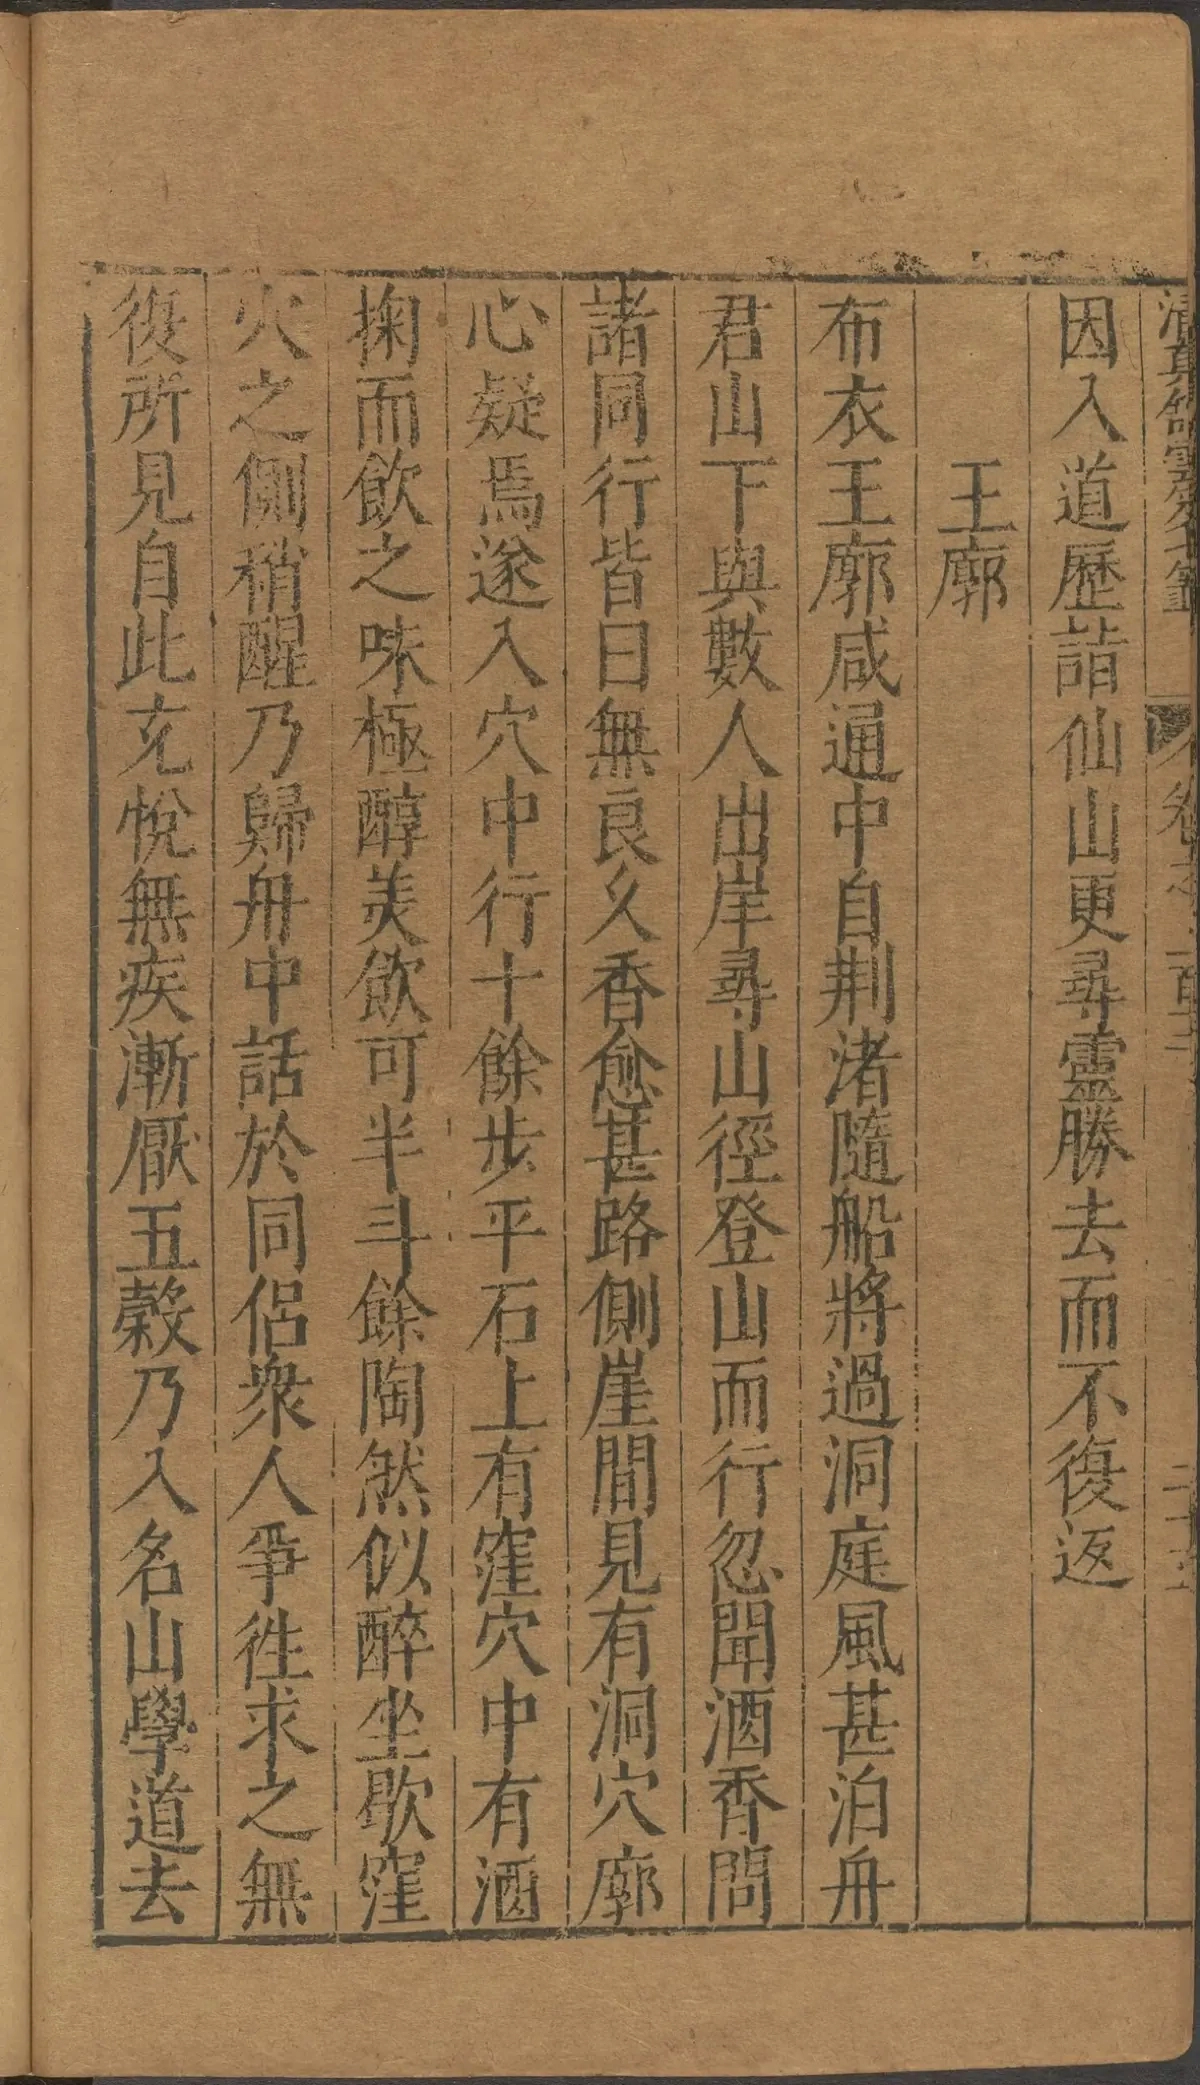 因入道歷詣仙山更尋靈勝去而不復返
王廓
布衣王廓咸通中自荆渚隨船將過洞庭風甚泊舟
君山下與數人出岸尋山徑登山而行忽聞酒香問
諸同行皆曰無良久香愈甚路側崖間見有洞穴廓
心疑焉遂入穴中行十餘步平石上有窪穴中有酒
掬而飲之味極醇美飲可半斗餘陶然似醉坐歇窪
穴之側稍醒乃歸舟中話於同侶衆人爭徃求之無
復所見自此充悅無疾漸厭五穀乃入名山學道去